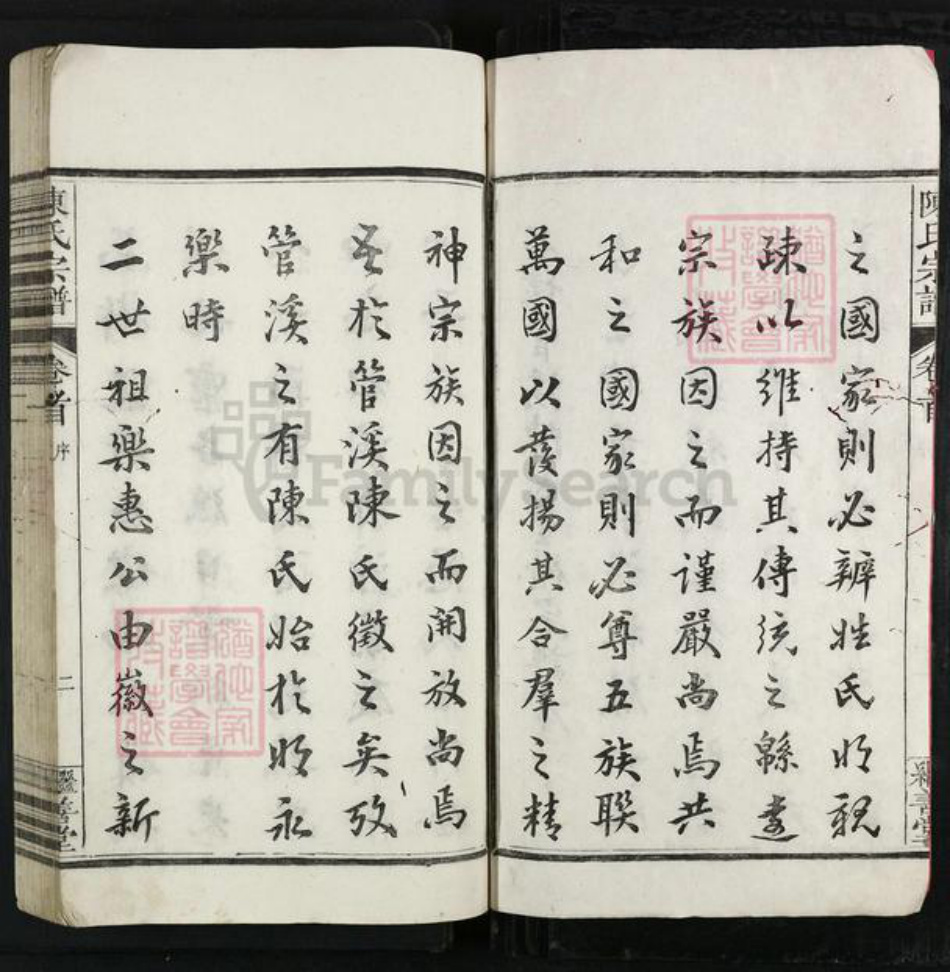 之國家則必辨姓氏明親
疎以維持其傳統之緜遠
宗族因之而謹嚴尚焉共
和之國家則必尊五族聯
萬國以發揚其合羣之精
神宗族因之而開放尚焉
於管溪陳氏徵之矣攷
管溪之有陳氏始於明永
樂時
二世祖樂惠公由徽之新
陳氏宗譜
卷首
序
二
繼善堂
陳氏宗譜
卷首
繼善堂
FamilySearch